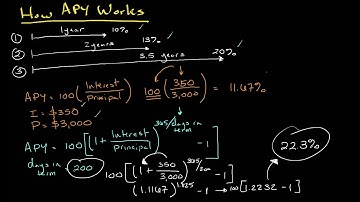 How APY Works
① 1year 10%
② 2 years 13%
③ 3.5 years 20%
APY = 100 (Interest / Principal) 100 (350 / 3,000) = 11.67%
I = $350
P = $3,000
APY = 100 [(1 + Interest / Principal)^365/days in term - 1] 22.3%
days in term = 200
100 [(1 + 350 / 3,000)^365/200 - 1]
(1.1167)^1.825 - 1 → 100 [1.2232 - 1]